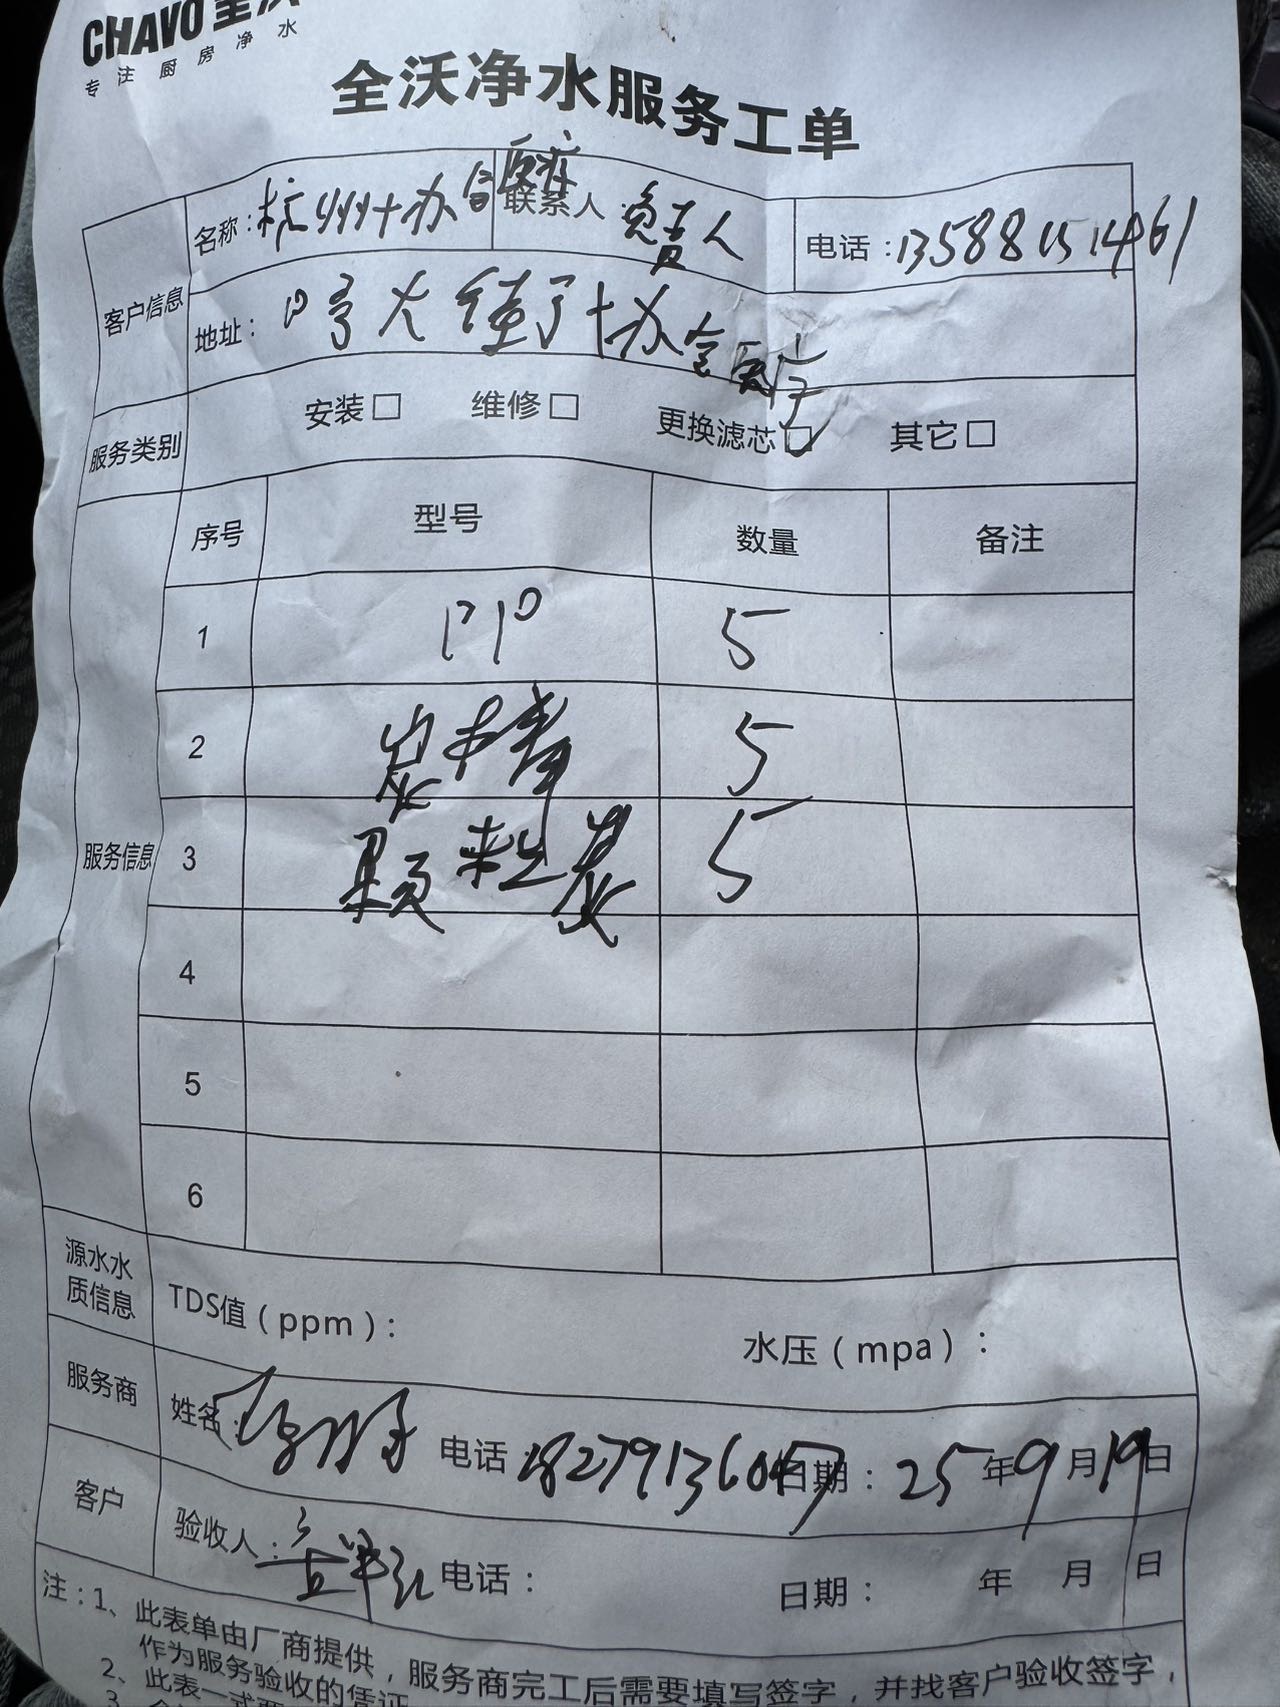 CHAVO全沃
专注厨房净水
全沃净水服务工单
客户信息
名称：杭州十 联系人：负责人 电话：13588151461
地址：
服务类别 安装□ 维修□ 更换滤芯□ 其它□
服务信息
序号 型号 数量 备注
1 PP 5
2 炭棒 5
3 颗粒炭 5
4
5
6
源水水质信息 TDS值（ppm）： 水压（mpa）：
服务商 姓名： 电话： 日期：25年9月19日
客户 验收人： 电话： 日期： 年 月 日
注：1、此表单由厂商提供，服务商完工后需要填写签字，并找客户验收签字，
作为服务验收的凭证
2、此表一式
3、